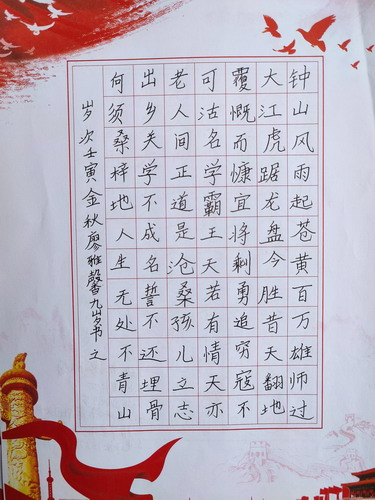 钟山风雨起苍黄百万雄师过
大江虎踞龙盘今胜昔天翻地
覆慨而慷宜将剩勇追穷寇不
可沽名学霸王天若有情天亦
老人间正道是沧桑孩儿立志
出乡关学不成名誓不还埋骨
何须桑梓地人生无处不青山
岁次壬寅金秋廖雅馨九岁书之